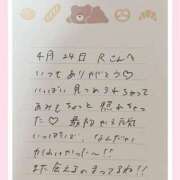 4月24日 Rさんへ
いつもありがとう♡
いっぱい見つめられちゃって
あみもちょっと照れちゃっ
た♡ 最初から元気
いっぱいで、なんだか
かわいかったー!!
また会えるのまってるね!!